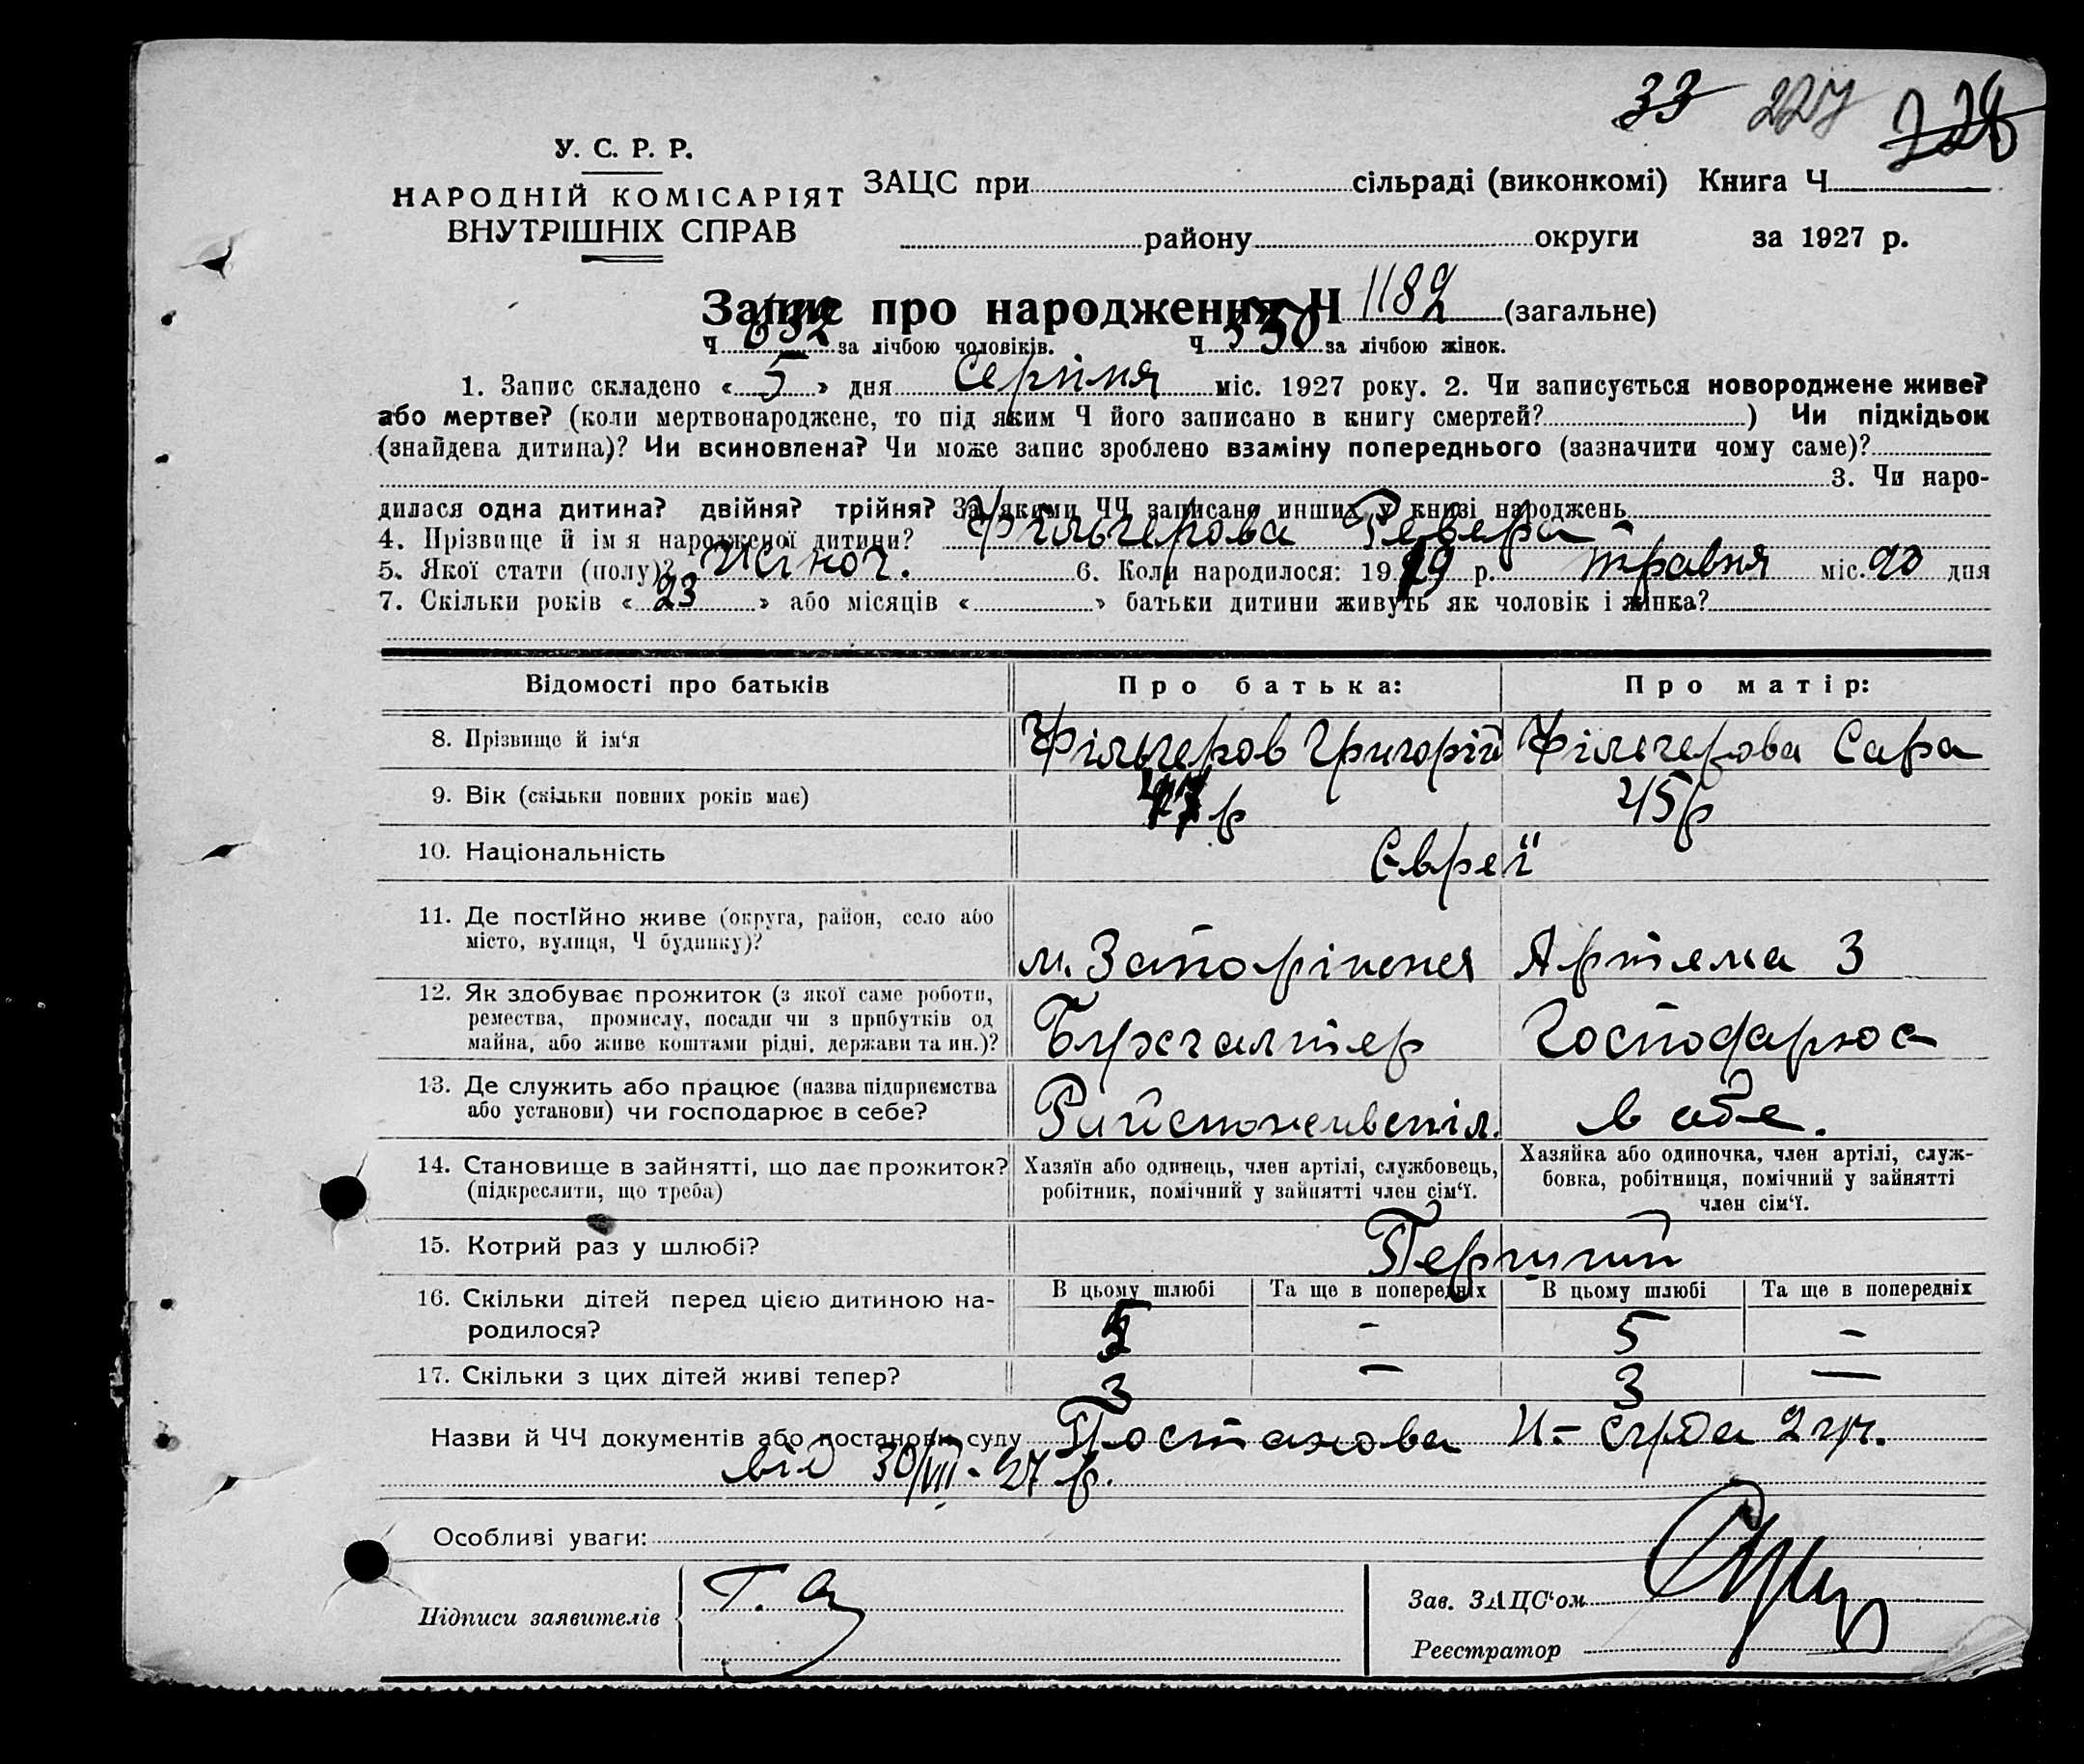 33 227 228
У. С. Р. Р.
НАРОДНІЙ КОМІСАРІЯТ
ВНУТРІШНІХ СПРАВ
ЗАЦС при сільраді (виконкомі) Книга Ч
району округи за 1927 р.
Запис про народження Ч 1182 (загальне)
Ч 632 за лічбою чоловіків. Ч 550 за лічбою жінок.
1. Запис складено «5» дня Серпня міс. 1927 року. 2. Чи записується новороджене живе?
або мертве? (коли мертвонароджене, то під яким Ч його записано в книгу смертей? ) Чи підкідьок
(знайдена дитина)? Чи всиновлена? Чи може запис зроблено взаміну попереднього (зазначити чому саме)?
3. Чи наро-
дилася одна дитина? двійня? трійня? За якими ЧЧ записано инших у книзі народжень
4. Прізвище й ім я народженої дитини? Фільгерова Ревера
5. Якої стати (полу)? Жіноч. 6. Коли народилося: 1919 р. травня міс. 20 дня
7. Скільки років «23» або місяців « » батьки дитини живуть як чоловік і жінка?
Відомості про батьків Про батька: Про матір:
8. Прізвище й ім‘я Фільгеров Григорій Фільгерова Сара
9. Вік (скільки повних років має) 47 р 45 р
10. Національність Євреї
11. Де постІйно живе (округа, район, село або
місто, вулиця, Ч будинку)?
м. Запоріжжя Артема 3
12. Як здобуває прожиток (з якої саме роботи,
ремества, промислу, посади чи з прибутків од
майна, або живе коштами рідні, держави та ин.)?
Бухгалтер Господарює
13. Де служить або працює (назва підприємства
або установи) чи господарює в себе?
в себе.
14. Становище в зайнятті, що дає прожиток?
(підкреслити, що треба)
Хазяїн або одинець, член артілі, службовець,
робітник, помічний у зайнятті член сім‘ї.
Хазяйка або одиночка, член артілі, служ-
бовка, робітниця, помічний у зайнятті
член сім‘ї.
15. Котрий раз у шлюбі? Перший
16. Скільки дітей перед цією дитиною на-
родилося?
В цьому шлюбі Та ще в попередніх В цьому шлюбі Та ще в попередніх
5 - 5 -
17. Скільки з цих дітей живі тепер? 3 — 3 —
Назви й ЧЧ документів або постанови суду Постанова Н-суда 2 гр.
від 30/VII - 27 р.
Особливі уваги:
Підписи заявителів
Зав. ЗАЦС‘ом
Реєстратор